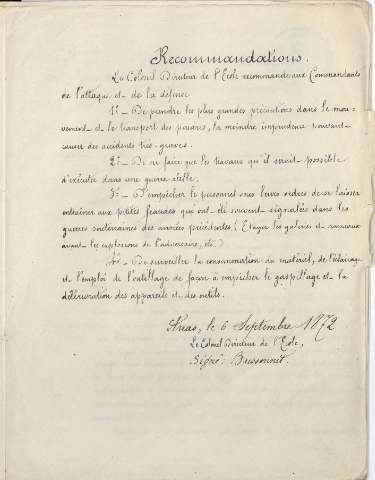 Recommandations.
Le Colonel Directeur de l'Ecole recommande aux Commandants
de l'attaque et de la défense
1º - De prendre les plus grandes précautions dans le mou-
vement et le transport des poudres, la moindre imprudence pouvant
causer des accidents très-graves.
2º - De ne faire que les travaux qu'il serait possible
d'exécuter dans une guerre réelle.
3º - D'empêcher le personnel sous leurs ordres de se laisser
entraîner aux petites fraudes qui ont été souvent signalées dans les
guerres souterraines des années précédentes (Etayer les galeries et rameaux
avant les explosions de l'adversaire, etc.)
4º - De surveiller la consommation du matériel, de l'éclairage
et l'emploi de l'outillage de façon à empêcher le gaspillage et la
détérioration des appareils et des outils.
Arras, le 6 Septembre 1872
Le Colonel Directeur de l'Ecole,
Signé: Bressonnet.